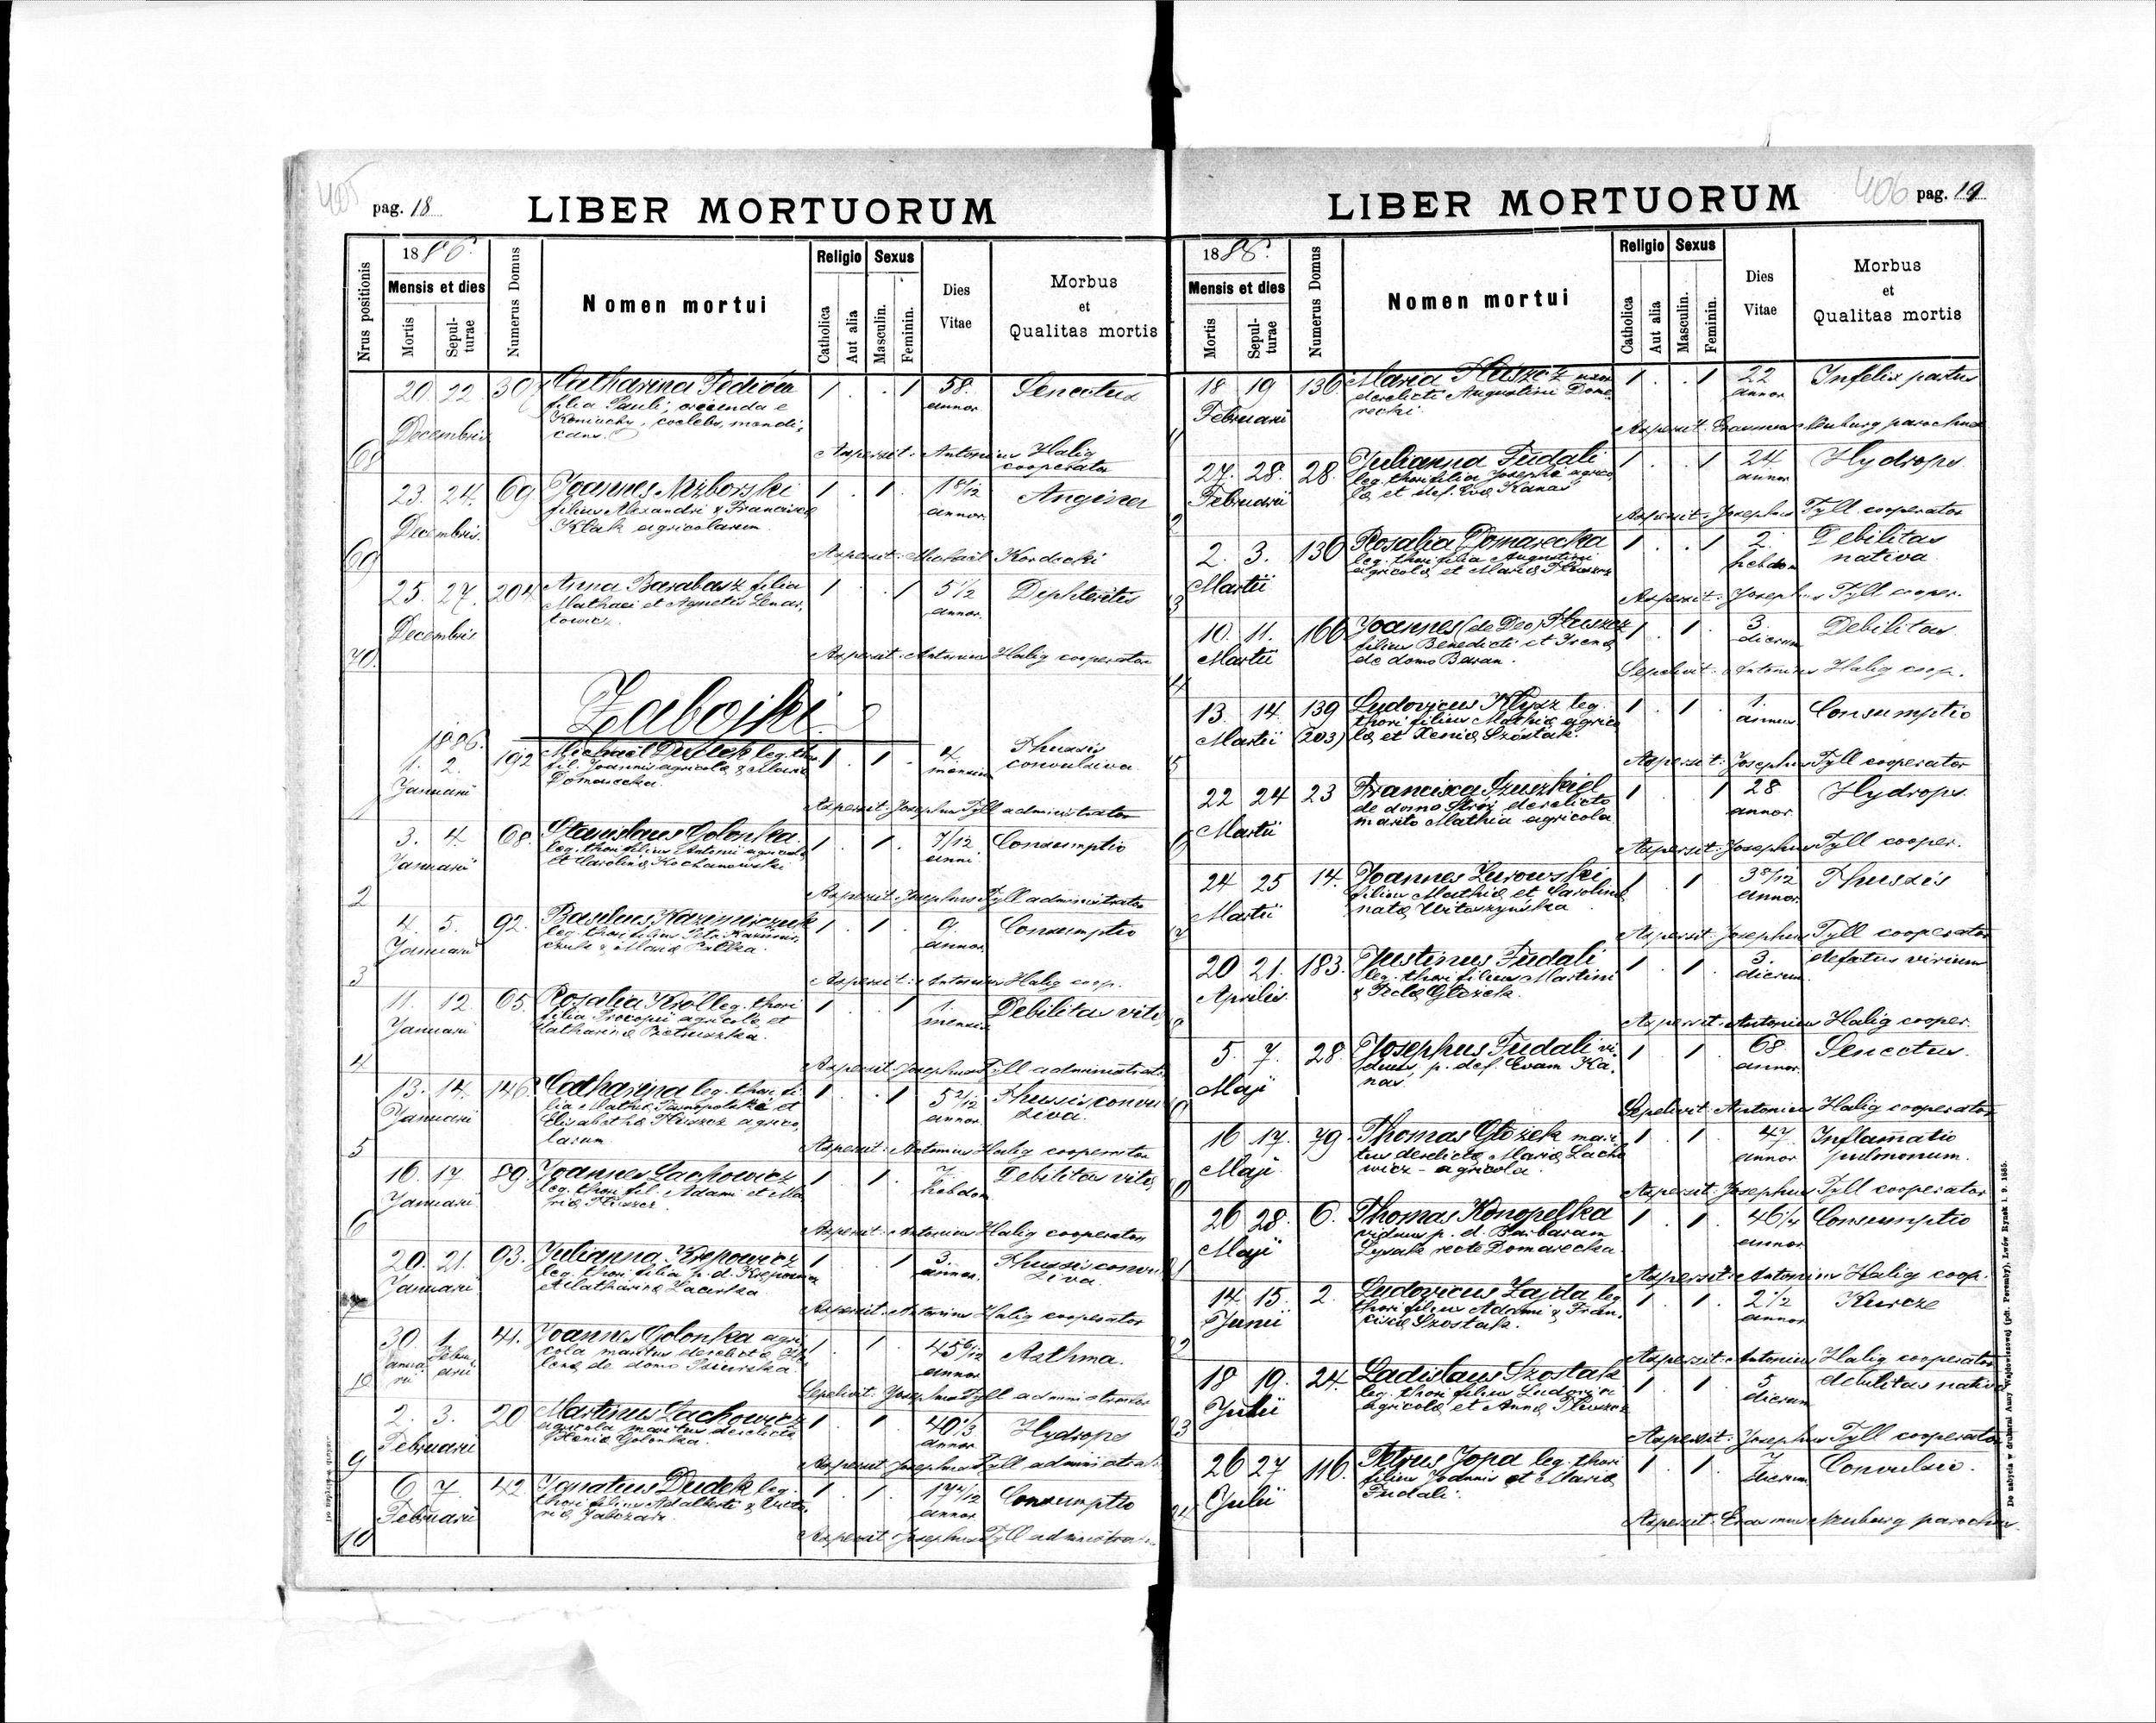 405
pag. 18
LIBER MORTUORUM
Nrus positionis
1886
Mensis et dies
Mortis
Sepulturae
Numerus Domus
Nomen mortui
Religio
Catholica
Aut alia
Sexus
Masculin.
Feminin.
Dies Vitae
Morbus
et
Qualitas mortis
68
20. 22. Decembris
Catharina
filia Pauli, oriunda e
Koniuchy, coelebs, mendi-
cans.
1 . . 1
58. annor.
Senectus
Aspersit: Antonius Halig
cooperator
69
23. 24. 69 Decembris.
Joannes Nizborski
filius Alexandri & Francisca
Klak agricolarum
1 . 1
1 8/12 annor.
Angina
Aspersit: Michael Kordecki
70.
25. 27. 204 Decembris
Anna Barabasz filia
Mathaei et Agnetis Lenar-
towicz.
1 . . 1
5 1/2 annor.
Diphteritis
Aspersit: Antonius Halig cooperator
Zabojki
1886.
1
1. 2. 192 Januarii
Michael Dudek leg. tho.
fil. Joannis agricola & Maria
Domarecka.
1 . 1 .
4. mensium
Thussis
convulsiva
Aspersit: Josephus Tyll administrator
2
3. 4. 68. Januarii
Stanislaus Golonka.
leg. thori filius Antonii agricola
et Carolina Kochanowska
1 . 1 .
7/12 anni
Consumptio
Aspersit: Josephus Tyll administrator
3
4. 5. 92. Januarii
Basilius Kazimirczuk
leg. thori filius Petri Kazimir-
czuk & Maria
1 . 1 .
9. annor.
Consumptio
Aspersit: Antonius Halig coop.
4
11. 12. 65. Januarii
Rosalia Król leg. thori
filia Procopii agricola et
Catharina Pietruszka.
1 . 1
1. mensis
Debilitas vitæ
Aspersit: Josephus Tyll administrator
5
13. 14. 146. Januarii
Catharina leg. thori fi-
lia Mathia Tarnopolski et
Elisabetha Pluszcz agrico-
larum.
1 . . 1
5 2/12 annor.
Thussis convul-
siva.
Aspersit: Antonius Halig cooperator
6
16. 17. 89. Januarii
Joannes Lachowicz
leg. thori fil. Adami et Ma-
ria Pluszcz.
1 . 1 .
7. hebdom.
Debilitas vitæ
Aspersit: Antonius Halig cooperator
7
20. 21. 93. Januarii
Julianna Krepowicz
leg. thori filia p. d.
& Catharina
1 . 1
3. annor.
Thussis convul-
siva.
Aspersit: Antonius Halig cooperator
8
30. 1. 41. Januarii Februarii
Joannes Golonka agri-
cola maritus derelicta
de domo
1 . 1 .
45 6/12 annor.
Asthma.
Sepelivit: Josephus Tyll administrator
9
2. 3. 20 Februarii
Martinus Lachowicz
agricola maritus derelicta
Golonka.
1 . 1 .
40 1/3 annor.
Hydrops
Aspersit Josephus Tyll administrator
10
6. 7. 42. Februarii
Ignatius Dudek leg.
thori filius Adalberti & Victo-
ria
1 . 1 .
annor.
Consumptio
Aspersit Josephus Tyll administrator
406
pag. 19
LIBER MORTUORUM
1886.
Mensis et dies
Mortis
Sepulturae
Numerus Domus
Nomen mortui
Religio
Catholica
Aut alia
Sexus
Masculin.
Feminin.
Dies
Vitae
Morbus
et
Qualitas mortis
18 19 136. Februarii
Maria Pluszcz uxor
derelicti Augustini Doma-
recki.
1 . . 1
22 annor.
Infelix partus
Aspersit: Erasmus Neuburg parochus
2
27. 28. 28. Februarii
Julianna Fudali
leg. thori filia Josephi agrico-
la et def. Eva Kanas
1 . . 1
24. annor.
Hydrops
Aspersit: Josephus Tyll cooperator
3
2. 3. 136 Martii
Rosalia Domarecka
leg. thori filia Augustini
agricola et Maria Pluszcz
1 . . 1
2. hebdom
Debilitas
nativa
Aspersit: Josephus Tyll cooper.
4
10. 11. 166 Martii
Joannes (de Deo) Pluszcz
filius Benedicti et Irena
de domo Baran.
1 . 1 .
3. dierum
Debilitas
Sepelivit: Antonius Halig coop.
5
13. 14. 139 (203) Martii
Ludovicus Klysz leg.
thori filius Mathia agrico-
la et Xenia Szóstak.
1 . 1 .
1. annus
Consumptio
Aspersit: Josephus Tyll cooperator
22 24 23 Martii
Francisca Szuszkiel
de domo Stróż derelicto
marito Mathia agricola
1 . 1
28 annor.
Hydrops
Aspersit: Josephus Tyll cooper.
24 25 14. Martii
Joannes Zurowski
filius Mathia et Carolina
nata Witoszyńska
1 . 1
3 8/12 annor.
Thussis
Aspersit: Josephus Tyll cooperator
20 21. 183. Aprilis
Justinus Fudali
leg. thori filius Martini
& Tecla Głożek.
1 . 1
3. dierum
defatus virium
Aspersit: Antonius Halig cooper.
5. 7. 28 Maji
Josephus Fudali vi-
duus, p. def. Evam Ka-
nas
1 . 1
68 annor.
Senectus.
Sepelivit: Antonius Halig cooperator
16 17. 79. Maji
Thomas Głożek mari-
tus derelicta Maria Lacho-
wicz - agricola.
1 . 1 .
47. annor
Inflam̄atio
pulmonum.
Aspersit: Josephus Tyll cooperator
26 28. 6. Maji
Thomas Konopelka
viduus p. d. Barbaram
Lysak recte Domarecka
1 . 1 .
46 1/4 annor
Consumptio
Aspersit: Antonius Halig coop.
14 15. 2. Junii
Ludovicus Zajda leg.
thori filius Adami & Fran-
cisca Szostak.
1 . 1 .
2 1/2 annor
Kurcze
Aspersit: Antonius Halig cooperator
18 19. 24. Julii
Ladislaus Szostak
leg. thori filius Ludovici
agricola et Anna Pluszcz
1 . 1
5 dierum
debilitas nativa
Aspersit: Josephus Tyll cooperator
26 27 116. Julii
Petrus Jopa leg. thori
filius Joannis et Maria
Fudali.
1 . 1 .
7 dierum
Convulsio.
Aspersit: Erasmus Neuburg parochus.
Do nabycia w drukarni Anny Wajdowiczowej (pdt. Poremby), Lwów Rynek l. 9. 1885.